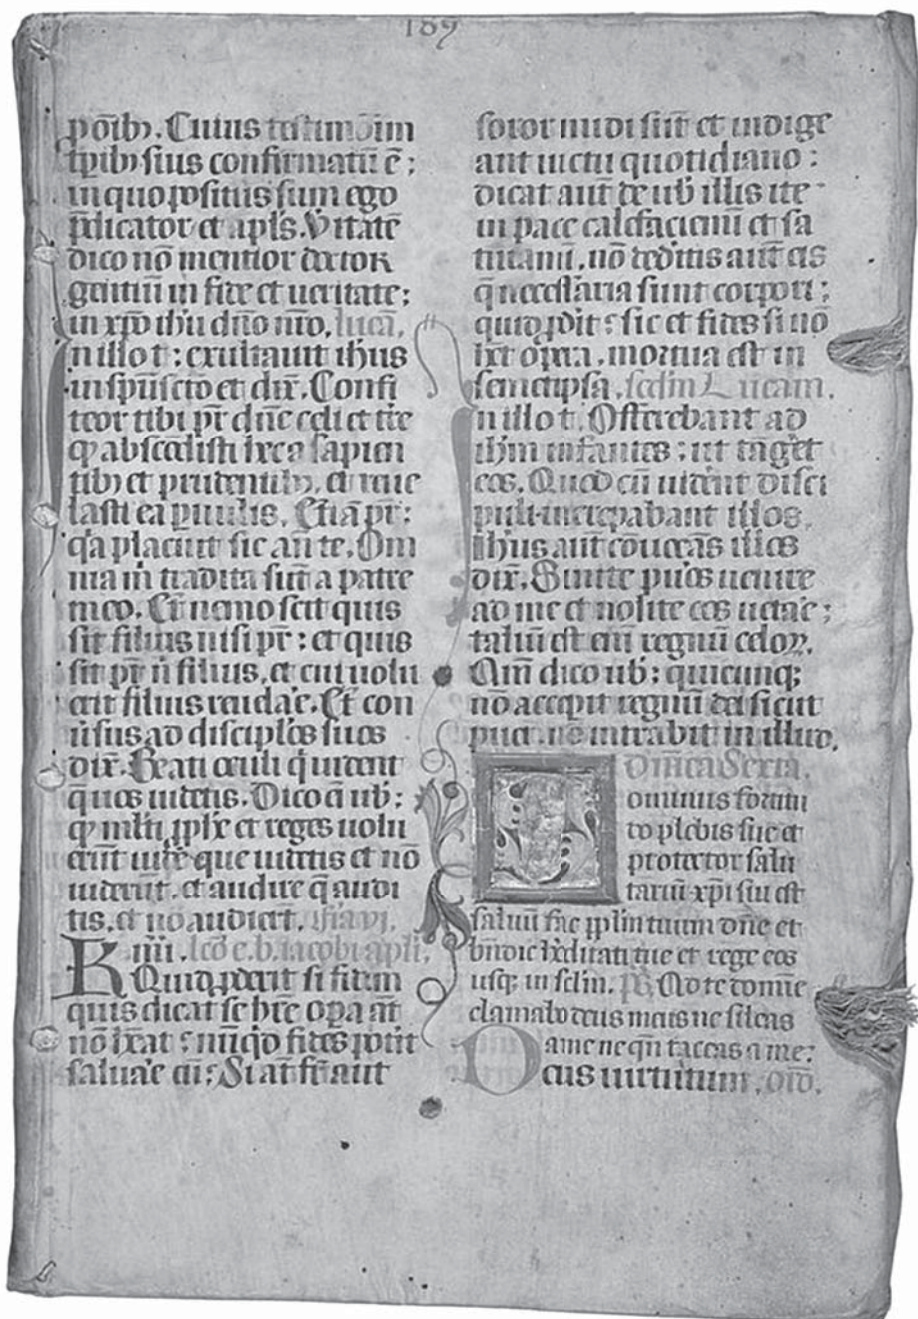 189
p oı̄bȝ. Cuius testimōım
tpıbȝ suis confirmatū ē:
in quo positus sum ego
p̄dicator et apl̄s. V̓itatē
dico nō mentior doctor
gentiū in fide et ueritate:
in xp̄o ih̓u dn̄o nr̄o. lucā.
n illo t̓: exultauit ih̓us
in spū sc̄to et dix̄. Confi
teor tibi pr̄ dn̄e celi et tr̄e
qꝫ abscōdisti hec a sapien
tibȝ et prudentibȝ. et reue
lasti ea ꝑuulis. Etiā pr̄:
q̓a placuit sic an̄ te. Om
nia m̄ tradita sūt a patre
meo. Et nemo scit quis
sit filius nisi pr̄: et quis
sit pr̄ n̄ filius. et cui uolu
erit filius reuelar̓e. Et con
u̓sus ad discipl̓os suos
dix̄. Beati oculi q̓ uident
q̄ uos uidetis. Dico .n. ub̓:
qꝫ ml̓ti ꝓphe et reges uolu
erūt uidēre que uidetis et nō
uiderūt. et audire q̄ audi
tis. et nō audierūt.
Rmi. lc̄o e. b. iacobi apl̓i.
Quid ꝓderit si fidem
quis dicat se hr̄e opa aūt
nō hēat: nūq̓d fides potīt
saluar̓e eū: Si aūt fr̄ aut
soror nudi sūt et indigē
ant uictu quotidiano:
dicat aūt de ub̓ illis ite
in pace calefacieminī et sa
turaminī. nō deditis aūt eis
q̄ necessaria sunt corpori:
quid ꝓdit: sic et fides si nō
h̄et opera. mortua est in
semetipsa. sc̄dm Lucam.
n illo t̓. Offerebant ad
ih̄m infantes: ut tanget
eos. Quod cū uidēnt disci
puli increpabant illos.
Ih̓us aūt cōuocās illos
dix̄. Sinite pu̓os uenire
ad me et nolite eos uetar̓e:
taliū est eni regnū celoꝝ.
Am̄ dico ub̓: quicunqꝫ
nō acceꝑit regnū dei sicut
puer. nō intrabit in illud.
Dn̄ica Sexta.
D ominus fortitu
do plebis sue et
protector salu
tariū xp̄i sui est
saluū fac ꝓplm tuum dn̄e et
bn̄dic hēditati tue et rege eos
usqꝫ in sc̄lm. Ps̄. Ad te domīe
clamabo deus meus ne sileas
ame ne qn̄ taceas a me:
Deus uirtutum. or̄o.